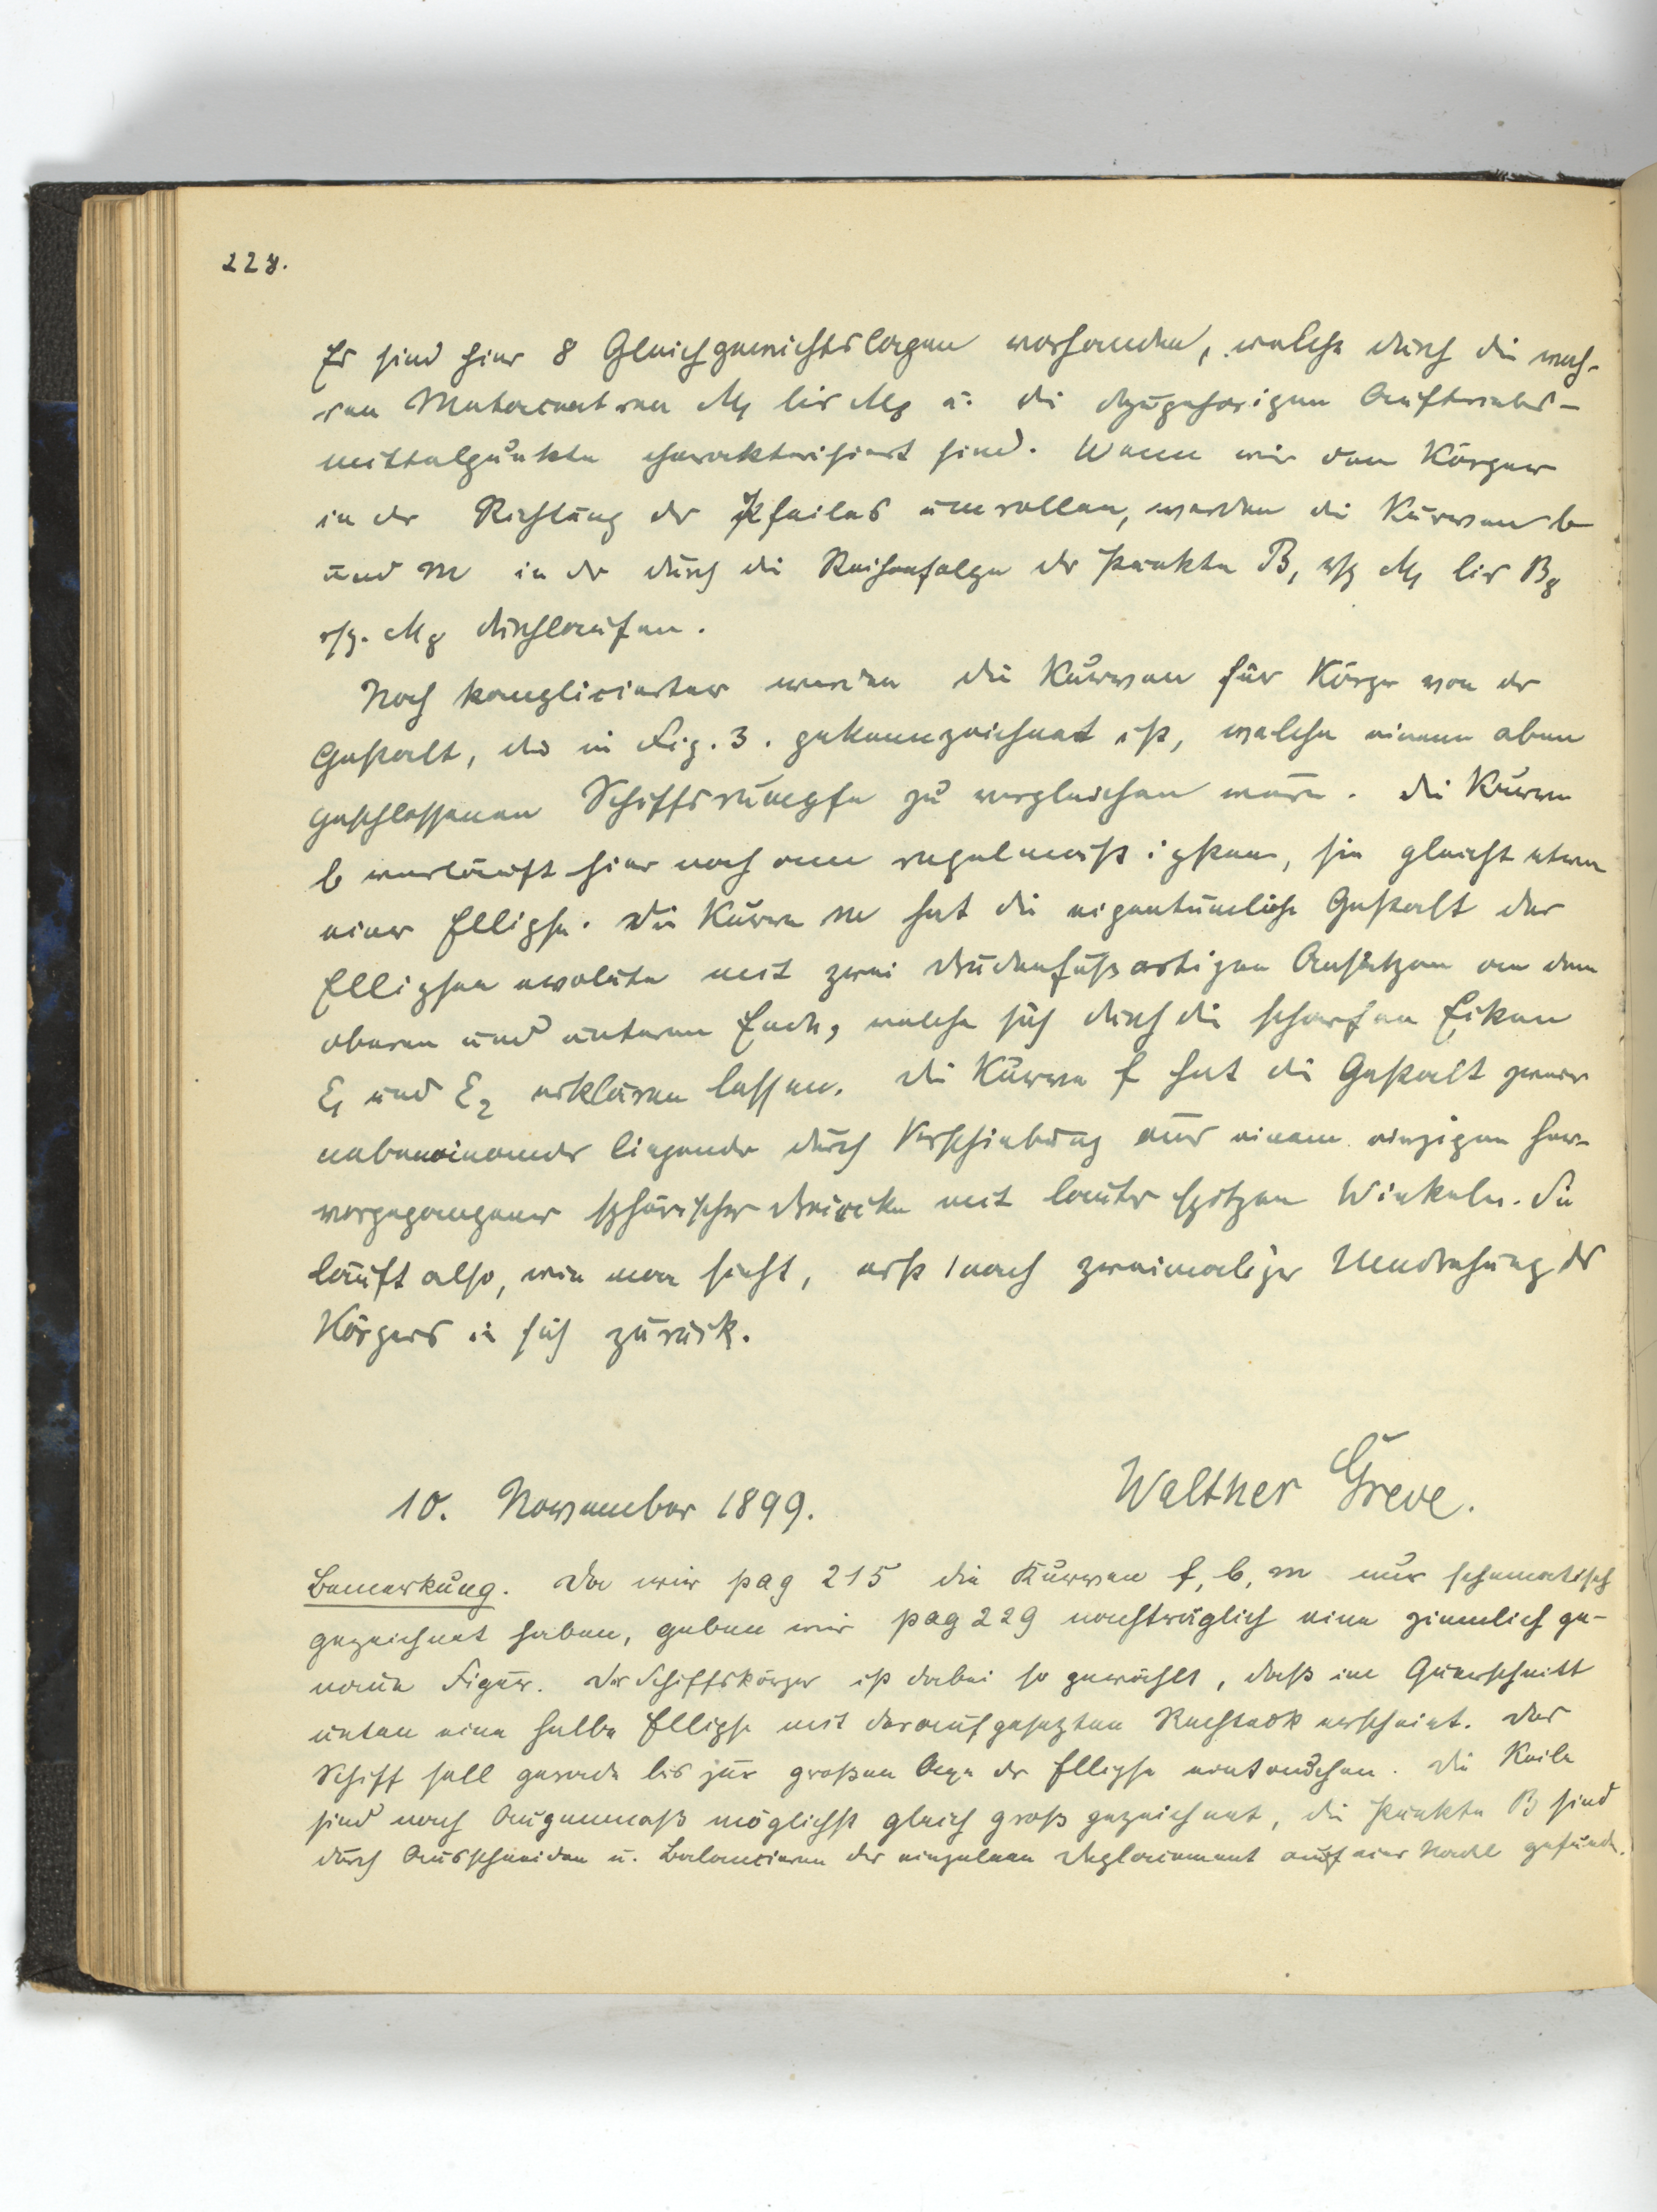 228.
Es sind hier 8 Gleichgewichtslagen vorhanden, welche durch die wah-
ren Metacentren M₁ bis M₈ u. die dazugehörigen Auftriebs-
mittelpunkte charakterisiert sind. Wenn wir den Körper
in der Richtung des Pfeiles umrollen, werden die Kurven b
und m in der durch die Reihenfolge der Punkte B₁ resp M₁ bis B₈
resp. M₈ durchlaufen.
Noch komplicierter werden die Kurven für Körper von der
Gestalt, die in Fig. 3. gekennzeichnet ist, welche einem oben
geschlossenen Schiffsrumpfe zu vergleichen wäre. Die Kurve
b verläuft hier noch am regelmäßigsten, sie gleicht etwa
einer Ellipse. Die Kurve m hat die eigentümliche Gestalt der
Ellipsen evolute mit zwei drudenfußartigen Ansätzen an dem
oberen und unteren Ende, welche sich durch die scharfen Ecken
E₁ und E₂ erklären lassen. Die Kurve f hat die Gestalt zweier
nebeneinander liegender durch Verschiebung aus einem einzigen her-
vorgegangener sphärischer Dreiecke mit lauter spitzen Winkeln. Sie
läuft also, wie man sieht, erst nach zweimaliger Umdrehung des
Körpers in sich zurück.
10. November 1899.
Walther Greve.
Bemerkung. Da wir pag 215 die Kurven f, b, m nur schematisch
gezeichnet haben, geben wir pag 229 nachträglich eine ziemlich ge-
naue Figur. Der Schiffskörper ist dabei so gewählt, daß im Querschnitt
unten eine halbe Ellipse mit daraufgesetzten Rechteck erscheint. Das
Schiff soll gerade bis zur großen Axe der Ellipse eintauchen. Die Keile
sind nach Augenmaß möglichst gleich groß gezeichnet, die Punkte B sind
durch Ausschneiden u. Balancieren der einzelnen Deplacement auf einer Nadel gefunden.